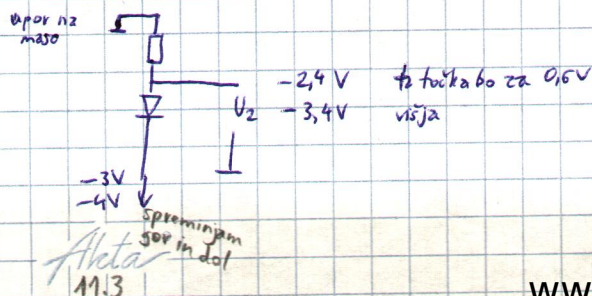 upor na
maso
-2,4 V ta točka bo za 0,6V
U₂ -3,4V višja
-3V
-4V
spreminjam
gor in dol
Akta
11.3
WW